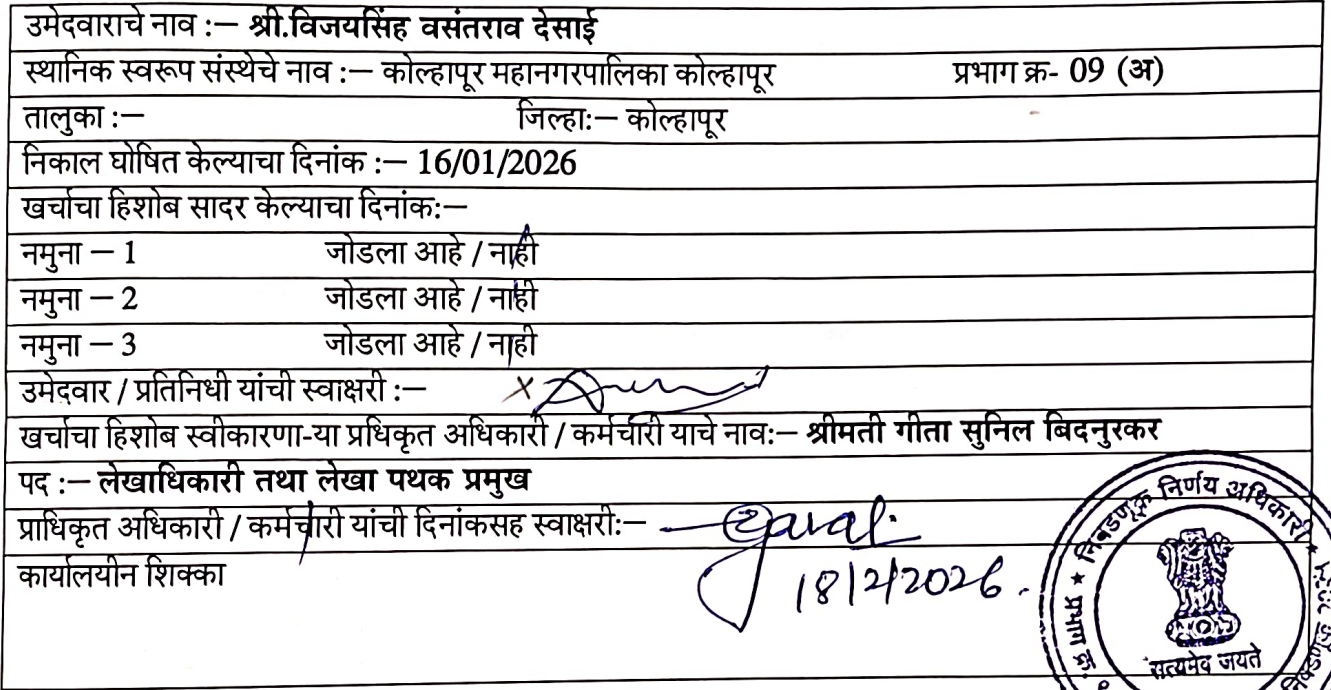 उमेदवाराचे नाव :– श्री.विजयसिंह वसंतराव देसाई
स्थानिक स्वरूप संस्थेचे नाव :– कोल्हापूर महानगरपालिका कोल्हापूर प्रभाग क्र- 09 (अ)
तालुका :– जिल्हा:– कोल्हापूर
निकाल घोषित केल्याचा दिनांक :– 16/01/2026
खर्चाचा हिशोब सादर केल्याचा दिनांक:–
नमुना – 1 जोडला आहे / नाही
नमुना – 2 जोडला आहे / नाही
नमुना – 3 जोडला आहे / नाही
उमेदवार / प्रतिनिधी यांची स्वाक्षरी :–
खर्चाचा हिशोब स्वीकारणा-या प्रधिकृत अधिकारी / कर्मचारी याचे नाव:– श्रीमती गीता सुनिल बिदनुरकर
पद :– लेखाधिकारी तथा लेखा पथक प्रमुख
प्राधिकृत अधिकारी / कर्मचारी यांची दिनांकसह स्वाक्षरी:–
18/2/2026.
कार्यालयीन शिक्का
निवडणूक निर्णय अधिकारी
प्रभाग क्र.
सत्यमेव जयते